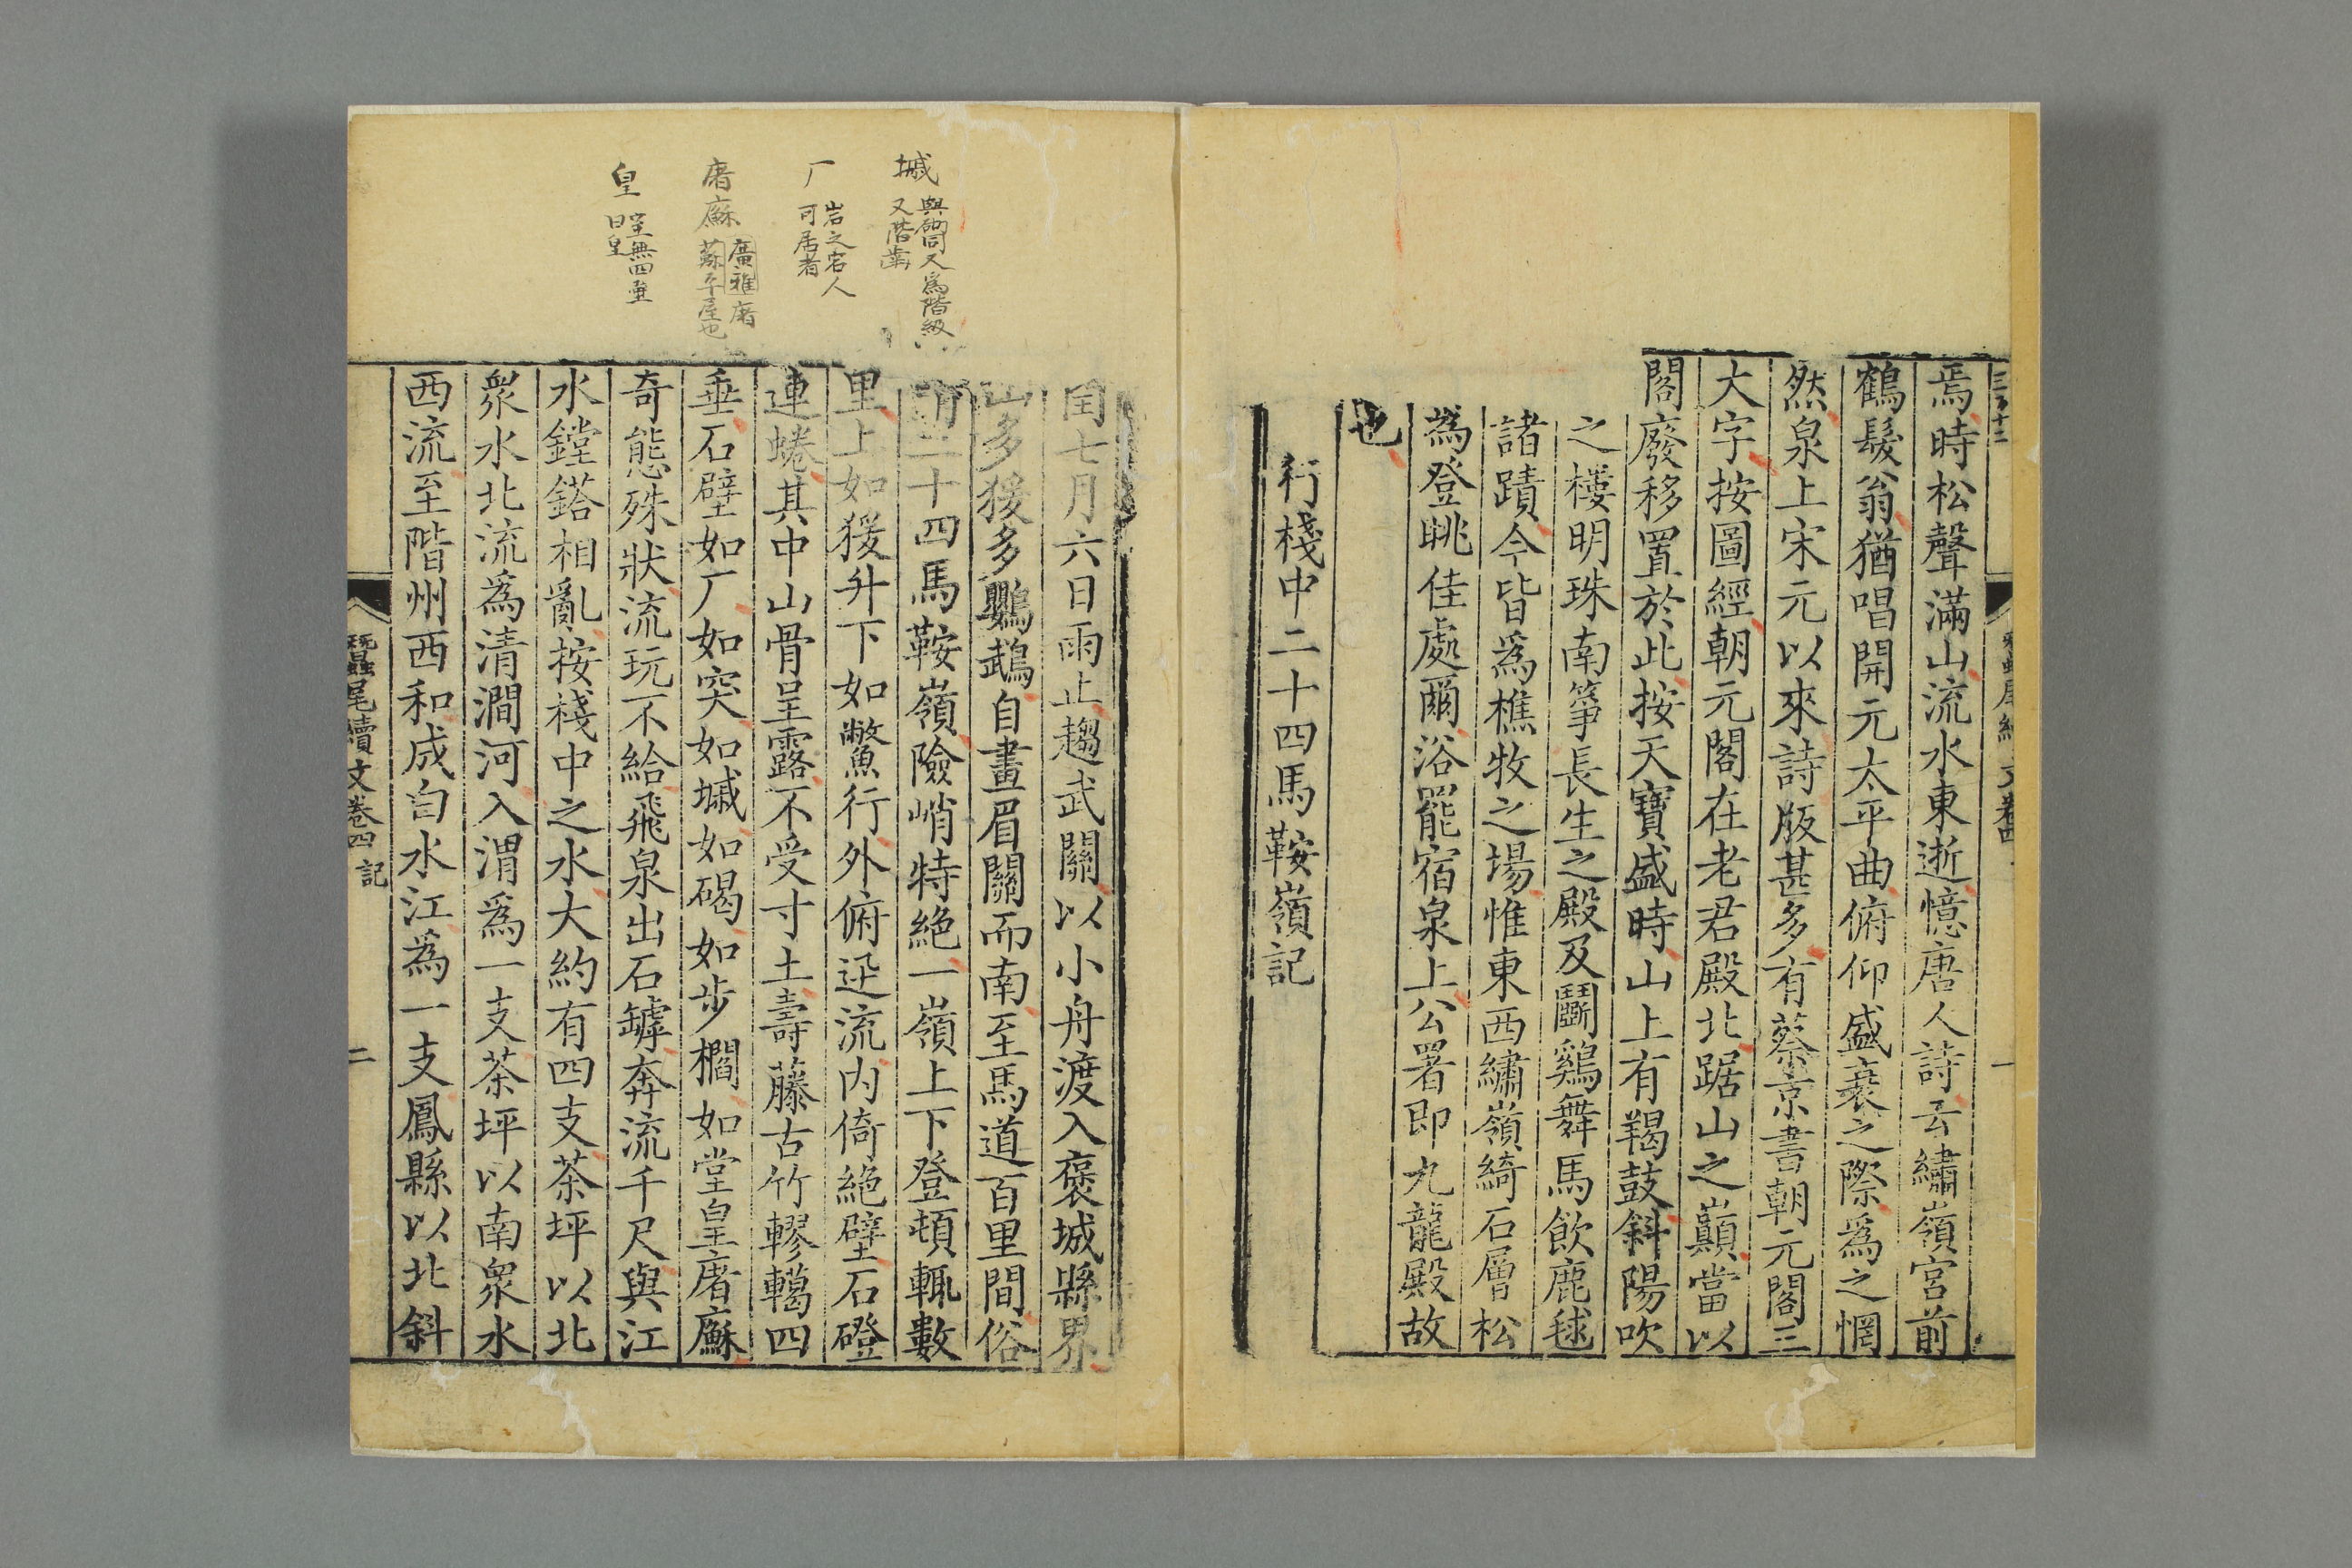 焉時松聲滿山流水東逝憶唐人詩云繡嶺宮前
鶴髮翁猶唱開元太平曲俯仰盛衰之際爲之惘
然泉上宋元以來詩版甚多有蔡京書朝元閣三
大字按圖經朝元閣在老君殿北踞山之巔當以
閣廢移置於此按天寶盛時山上有羯鼓斜陽吹
之樓明珠南箏長生之殿及鬬鷄舞馬飲鹿毬
諸蹟今皆爲樵牧之場惟東西繡嶺綺石層松
爲登眺佳處爾浴罷宿泉上公署即九龍殿故
也
行棧中二十四馬鞍嶺記
閏七月六日雨止趨武關以小舟渡入褒城縣界
山多猨多鸚鵡自畫眉關而南至馬道百里間俗
二十四馬鞍嶺險峭特絶一嶺上下登頓輒數
里上如猨升下如鱉行外俯迅流内倚絶壁石磴
連蜷其中山骨呈露不受寸土壽藤古竹轇轕四
垂石壁如厂如突如墄如碣如步櫩如堂皇廜㢝
奇態殊狀流玩不給飛泉出石罅奔流千尺與江
水鏜鎝相亂按棧中之水大約有四支茶坪以北
衆水北流爲清澗河入渭爲一支茶坪以南衆水
西流至階州西和成白水江爲一支鳳縣以北斜
蠶尾續文卷四 記
二
墄 與砌同又爲階級
又階齒
厂 岩之宕人
可居者
廜㢝 廣雅廜
㢝平屋也
皇 室無四壁
曰皇